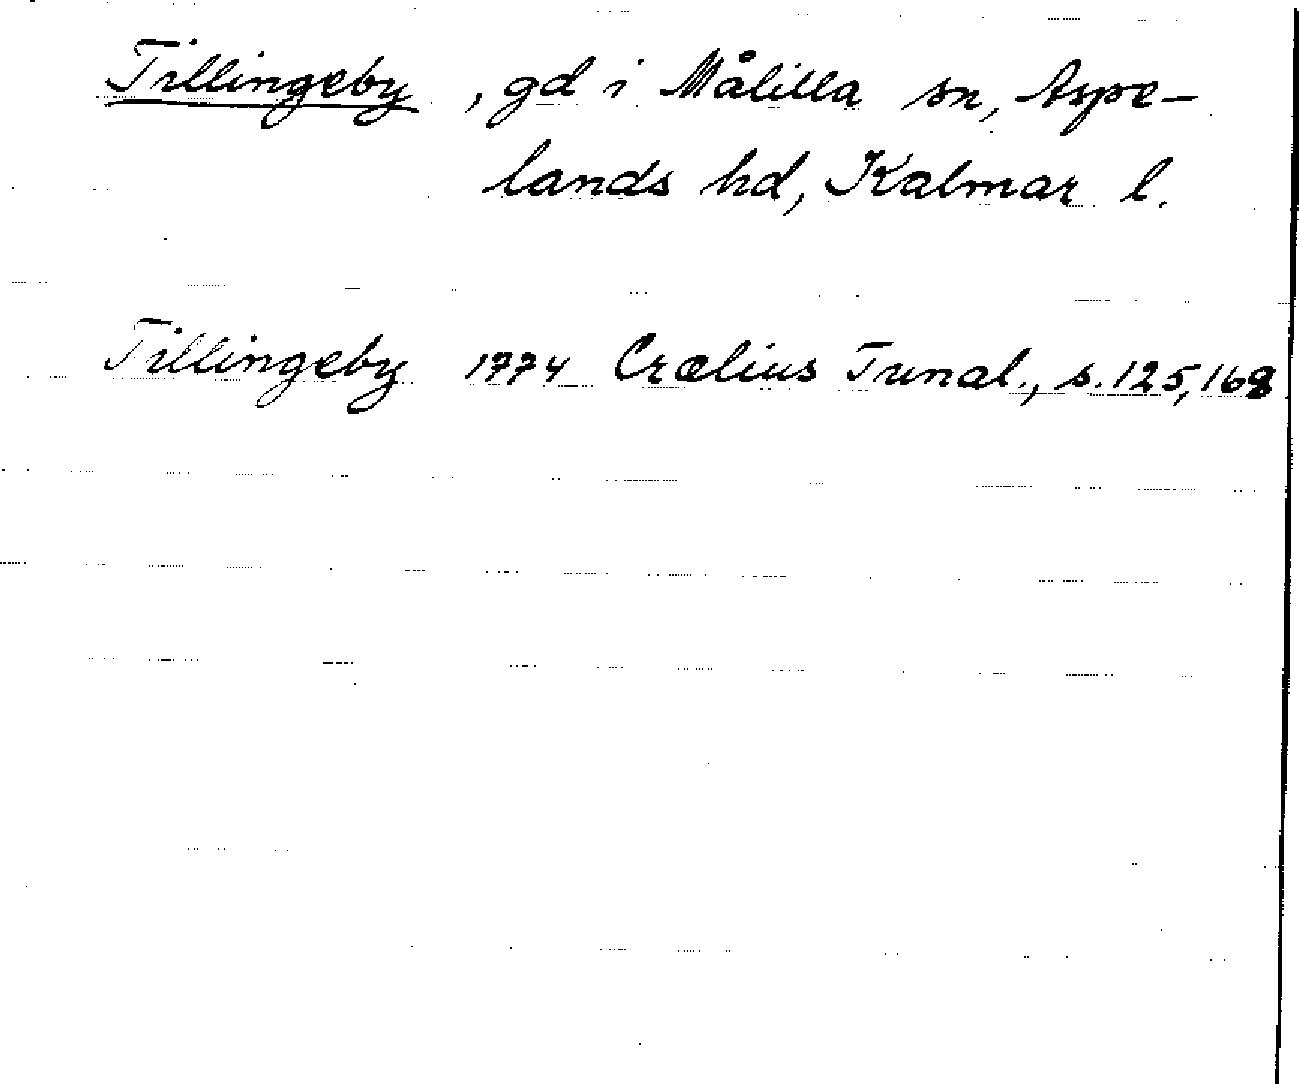 Tillingeby, gd i Målilla sn, Aspe-
lands hd, Kalmar l.
Tillingeby 1774 Crælius Tunal., s. 125, 168